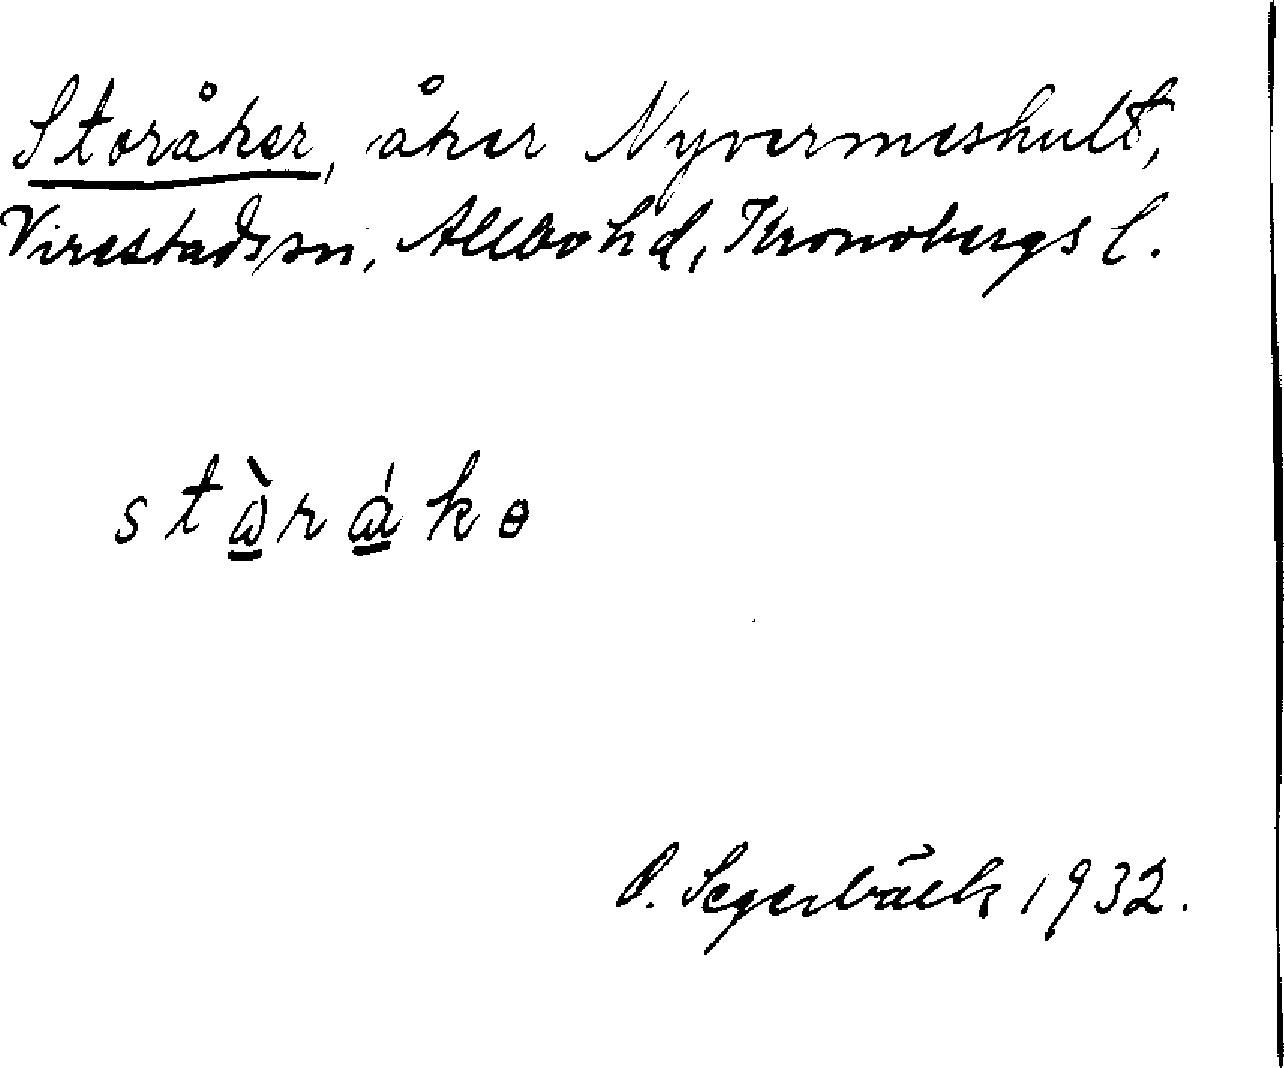 Storåker, åker Nyvermeshult,
Virestads sn, Allbo hd, Kronobergs l.
stὼ̲rά̲kɵ
P. Segerbäck 1932.